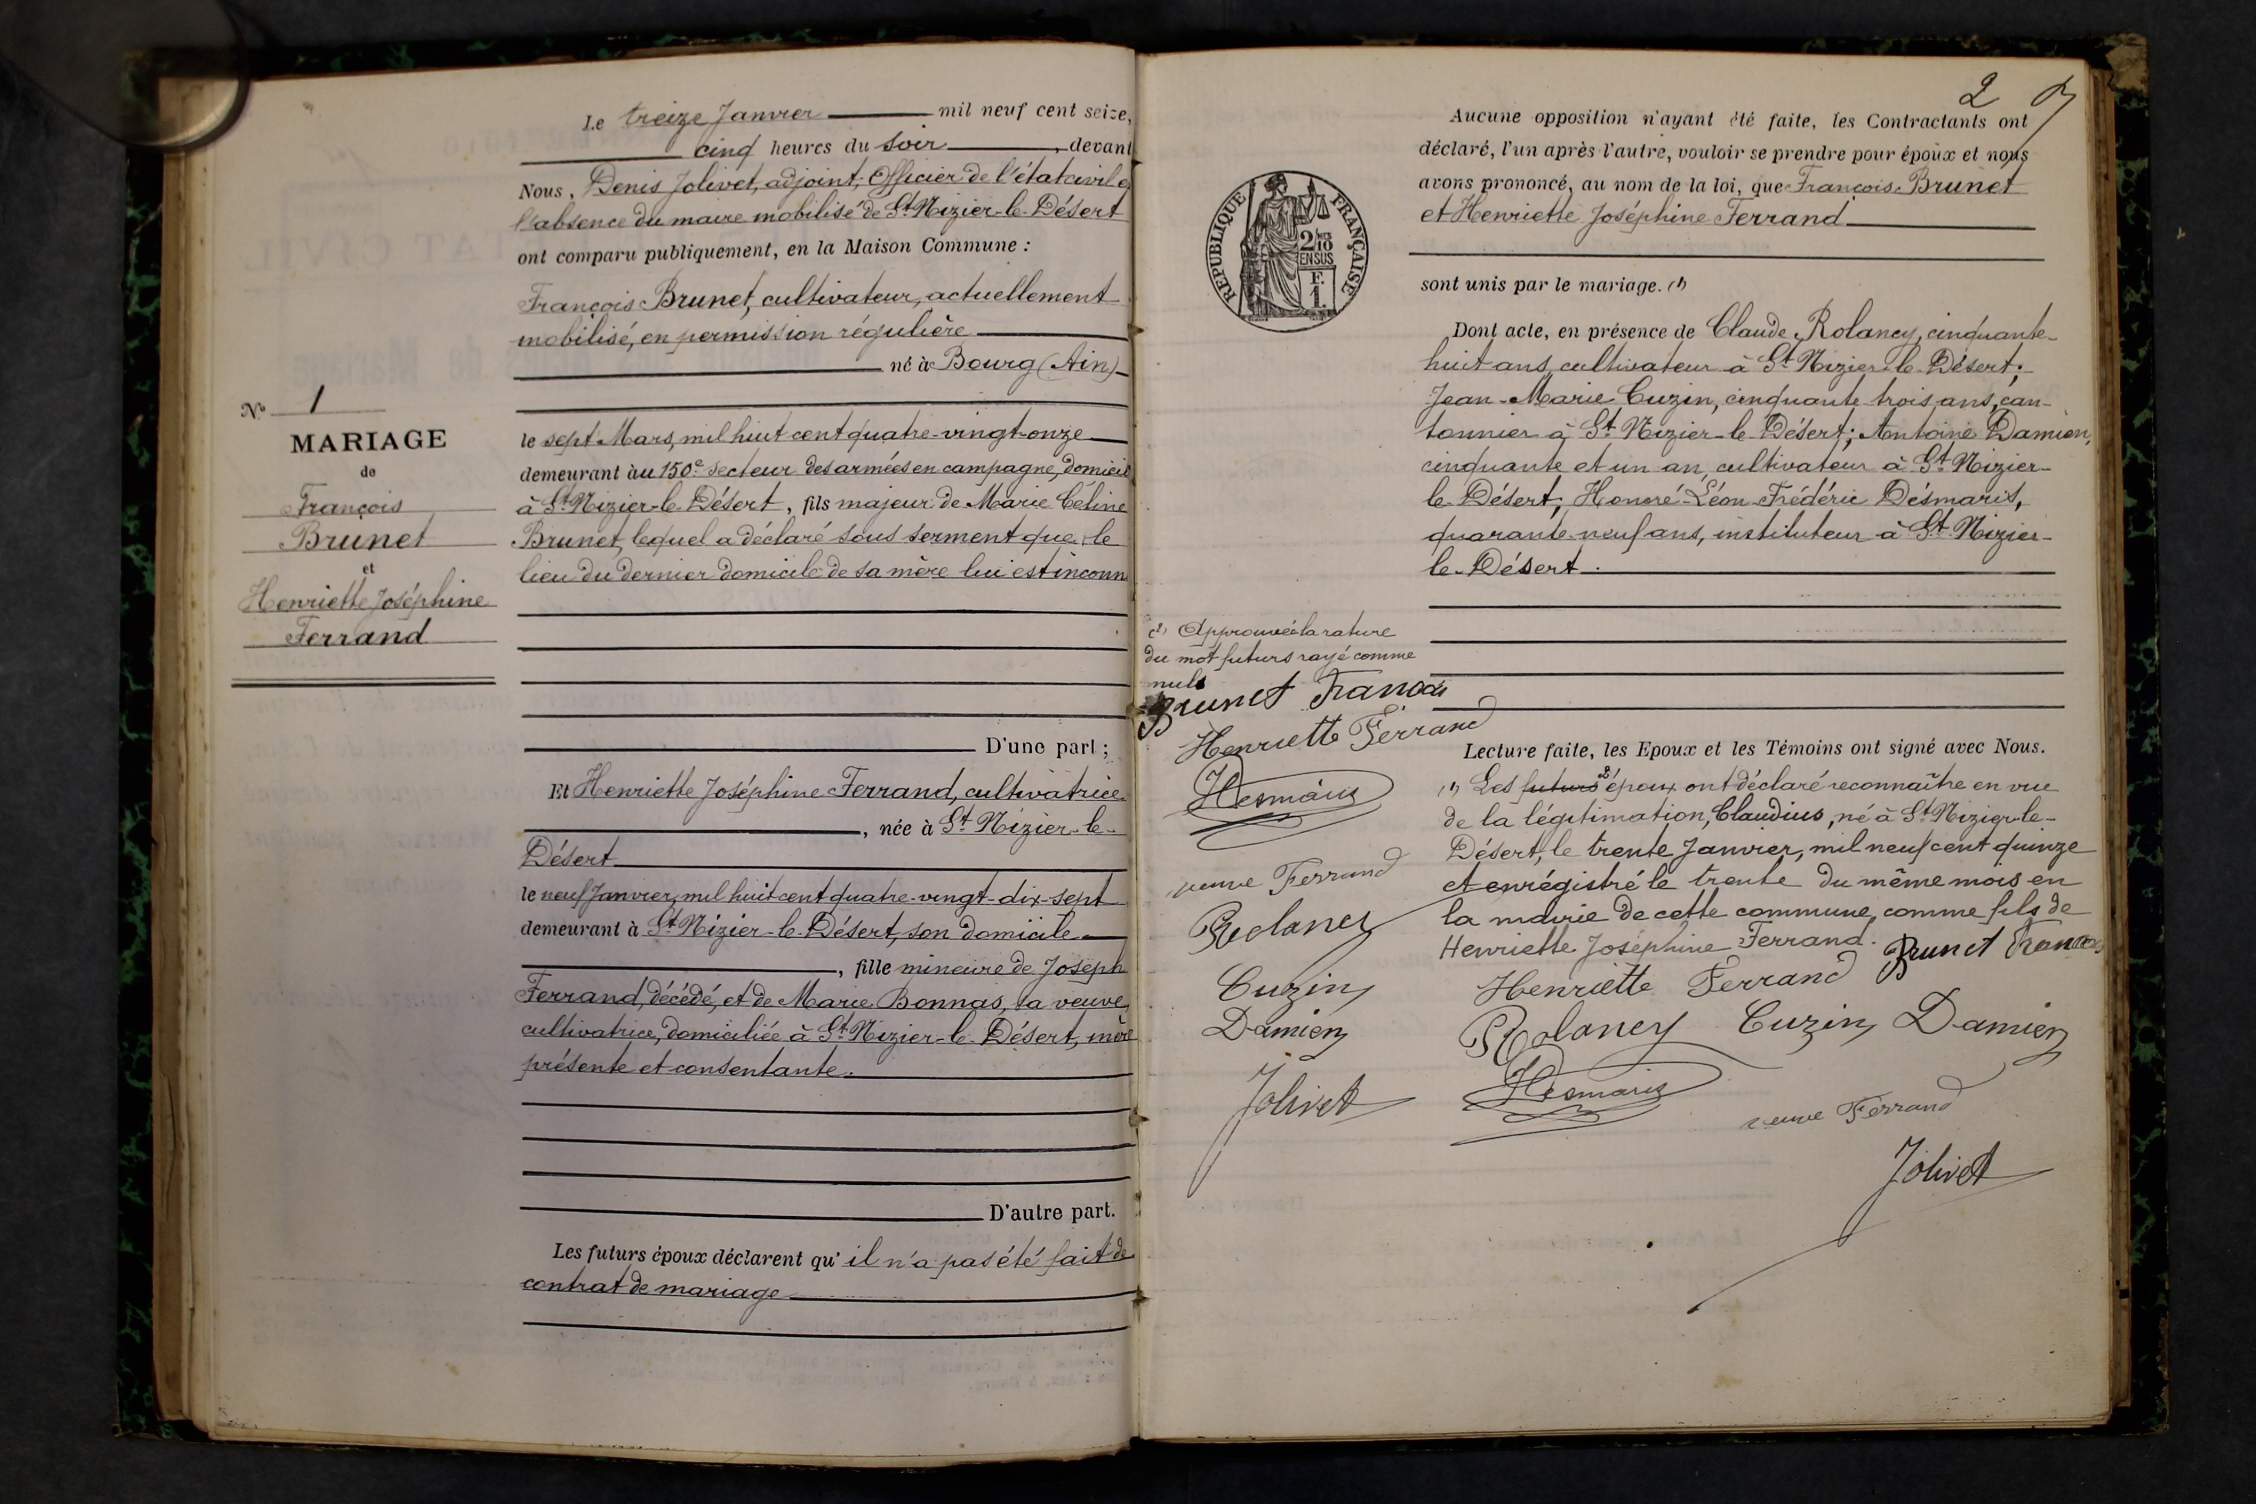 Le treize Janvier mil neuf cent seize,
cinq heures du soir, devant
Nous, Denis Jolivet, adjoint, Officier de l'état civil en
l'absence du maire mobilisé de St Nizier-le-Désert
ont comparu publiquement, en la Maison Commune :
François Brunet, cultivateur, actuellement
mobilisé, en permission régulière
né à Bourg (Ain)
le sept Mars, mil huit cent quatre-vingt-onze
demeurant au 150e secteur des armées en campagne, domicil
à St Nizier-le-Désert, fils majeur de Marie Céline
Brunet, lequel a déclaré sous serment que le
lieu du dernier domicile de sa mère lui est inconn
D'une part ;
Et Henriette Joséphine Ferrand, cultivatrice
, née à St Nizier-le-
Désert
le neuf Janvier, mil huit cent quatre-vingt-dix-sept
demeurant à St Nizier-le-Désert, son domicile
, fille mineure de Joseph
Ferrand, décédé, et de Marie Bonnas, sa veuve
cultivatrice, domiciliée à St Nizier-le-Désert, mère
présente et consentante.
D'autre part.
Les futurs époux déclarent qu'il n'a pas été fait de
contrat de mariage
No 1
MARIAGE
de
François
Brunet
et
Henriette Joséphine
Ferrand
2
Aucune opposition n'ayant été faite, les Contractants ont
déclaré, l'un après l'autre, vouloir se prendre pour époux et nous
avons prononcé, au nom de la loi, que François Brunet
et Henriette Joséphine Ferrand
sont unis par le mariage. (1)
Dont acte, en présence de Claude Rolancy, cinquante-
huit ans, cultivateur à St Nizier-le-Désert ;
Jean-Marie Cuzin, cinquante-trois ans, can-
tonnier à St Nizier-le-Désert ; Antoine Damien,
cinquante et un an, cultivateur à St Nizier-
le-Désert ; Honoré-Léon-Frédéric Désmaris,
quarante-neuf ans, instituteur à St Nizier-
le-Désert.
Lecture faite, les Epoux et les Témoins ont signé avec Nous.
(1) Les futurs (2) époux ont déclaré reconnaître en vue
de la légitimation, Claudius, né à St Nizier-le-
Désert, le trente Janvier, mil neuf cent quinze
et enrégistré le trente du même mois en
la mairie de cette commune, comme fils de
Henriette Joséphine Ferrand. Brunet François
Henriette Ferrand
Rolancy Cuzin Damien
Hesmaris
veuve Ferrand
Jolivet
REPUBLIQUE FRANÇAISE
2/10
EN SUS
F.
1.
(2) Approuvé la rature
du mot futurs rayé comme
nuls
Brunet François
Henriette Ferrand
Hesmaris
veuve Ferrand
Rolancy
Cuzin
Damien
Jolivet